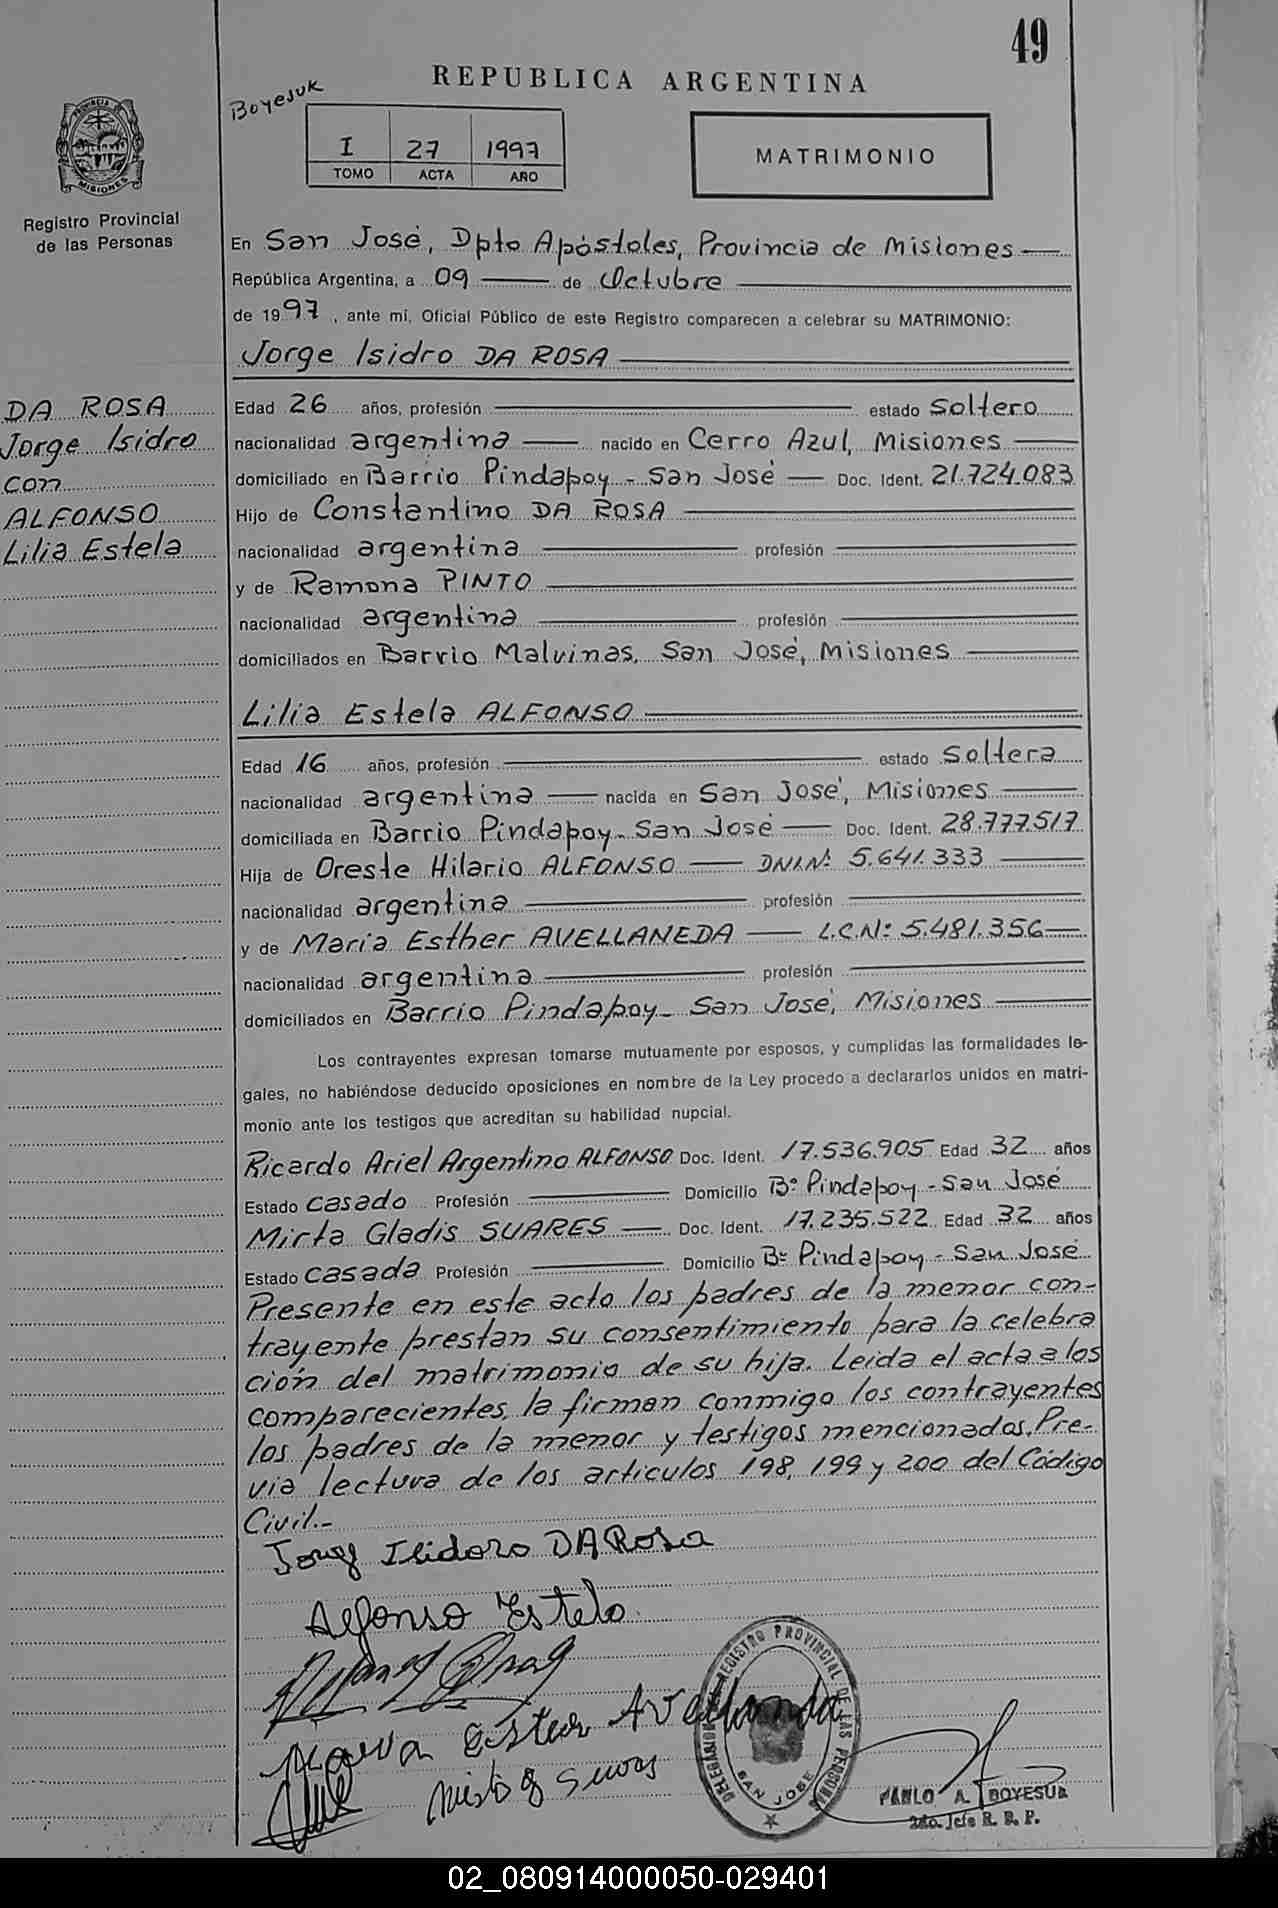 49
REPUBLICA ARGENTINA
Boyesuk
I 27 1997
TOMO ACTA AÑO
MATRIMONIO
PROVINCIA DE
MISIONES
Registro Provincial
de las Personas
En San José, Dpto Apóstoles, Provincia de Misiones
República Argentina, a 09 de Octubre
de 1997, ante mí, Oficial Público de este Registro comparecen a celebrar su MATRIMONIO:
Jorge Isidro DA ROSA
DA ROSA
Jorge Isidro
con
ALFONSO
Lilia Estela
Edad 26 años, profesión estado soltero
nacionalidad argentina nacido en Cerro Azul, Misiones
domiciliado en Barrio Pindapoy - San José Doc. Ident. 21.724.083
Hijo de Constantino DA ROSA
nacionalidad argentina profesión
y de Ramona PINTO
nacionalidad argentina profesión
domiciliados en Barrio Malvinas, San José, Misiones
Lilia Estela ALFONSO
Edad 16 años, profesión estado soltera
nacionalidad argentina nacida en San José, Misiones
domiciliada en Barrio Pindapoy - San José Doc. Ident. 28.777.517
Hija de Oreste Hilario ALFONSO DNI.Nº 5.641.333
nacionalidad argentina profesión
y de Maria Esther AVELLANEDA L.C.Nº 5.481.356
nacionalidad argentina profesión
domiciliados en Barrio Pindapoy - San José, Misiones
Los contrayentes expresan tomarse mutuamente por esposos, y cumplidas las formalidades le-
gales, no habiéndose deducido oposiciones en nombre de la Ley procedo a declararlos unidos en matri-
monio ante los testigos que acreditan su habilidad nupcial.
Ricardo Ariel Argentino ALFONSO Doc. Ident. 17.536.905 Edad 32 años
Estado casado Profesión Domicilio Bº Pindapoy - San José
Mirta Gladis SUARES Doc. Ident. 17.235.522 Edad 32 años
Estado casada Profesión Domicilio Bº Pindapoy - San José
Presente en este acto los padres de la menor con-
trayente prestan su consentimiento para la celebra
ción del matrimonio de su hija. Leida el acta a los
comparecientes, la firman conmigo los contrayentes
los padres de la menor y testigos mencionados. Pre-
via lectura de los articulos 198, 199 y 200 del Código
Civil.-
Jorge Isidoro DA Rosa
Alfonso Estela
Maria Ester Avellaneda
DELEGACION REGISTRO PROVINCIAL DE LAS PERSONAS
SAN JOSE
PABLO A. BOYESUK
2do. Jefe R. P. P.
02_080914000050-029401